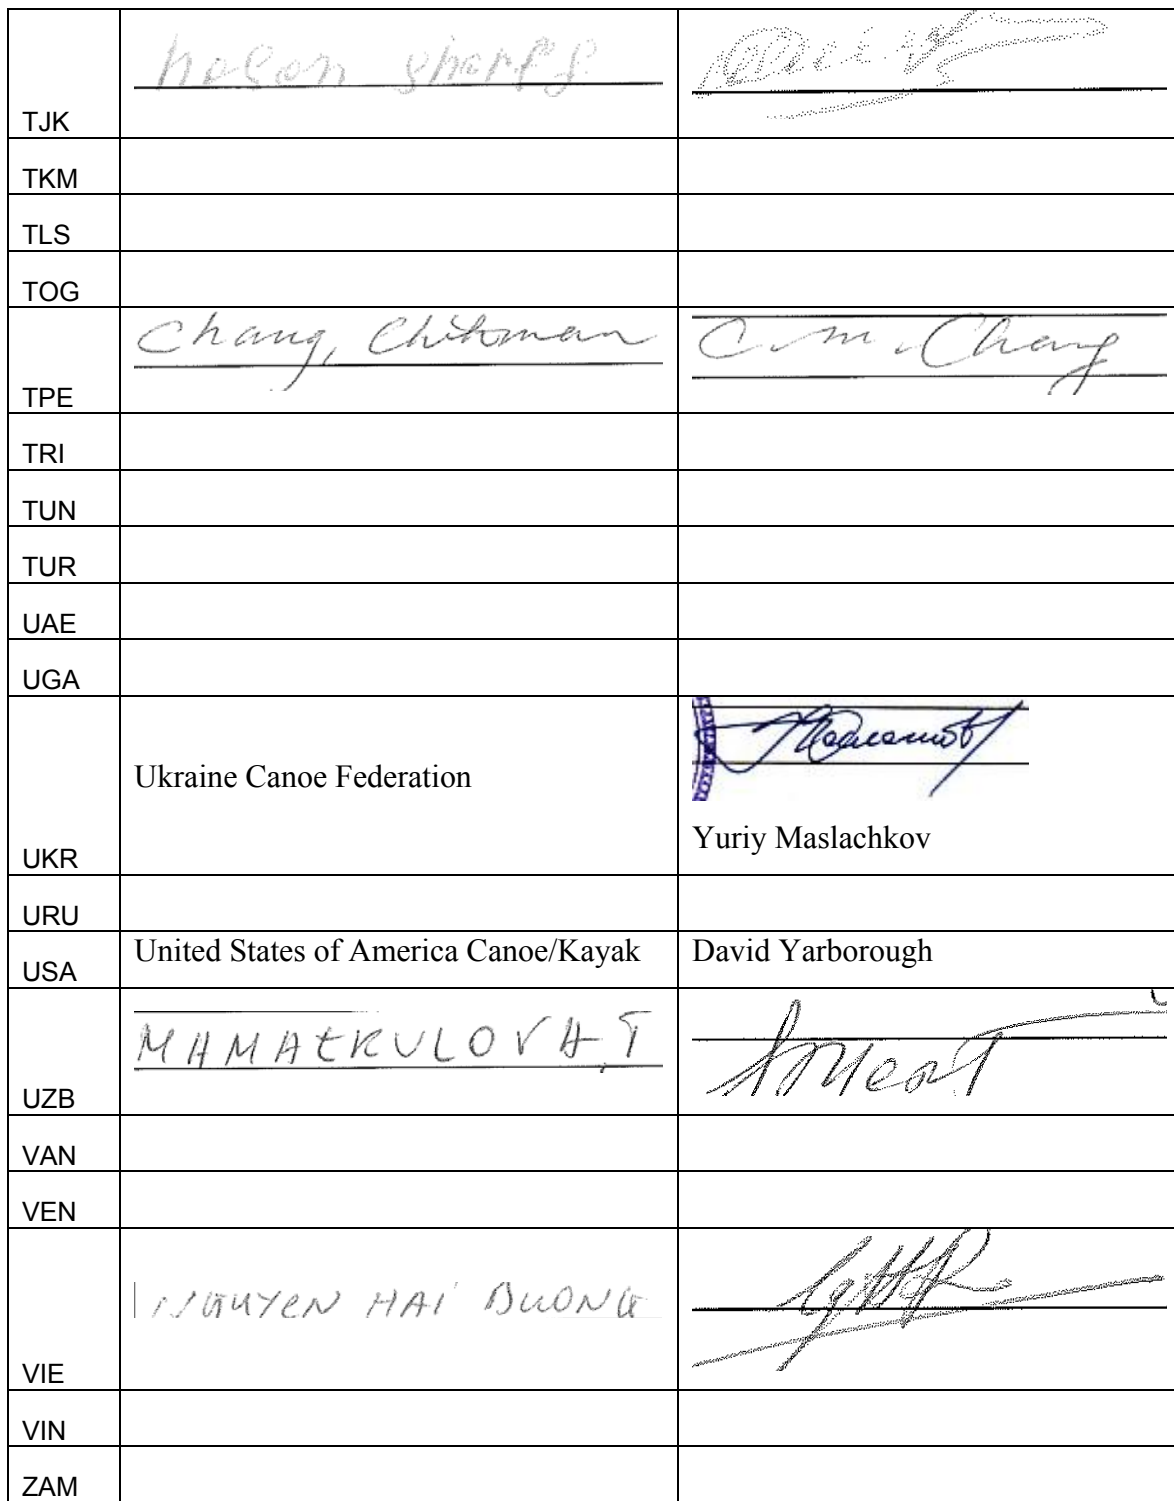 TJK
TKM
TLS
TOG
Chang, Chihman C. M. Chang
TPE
TRI
TUN
TUR
UAE
UGA
Ukraine Canoe Federation
Yuriy Maslachkov
UKR
URU
USA United States of America Canoe/Kayak David Yarborough
MAMATKULOVA T
UZB
VAN
VEN
NGUYEN HAI DUONG
VIE
VIN
ZAM